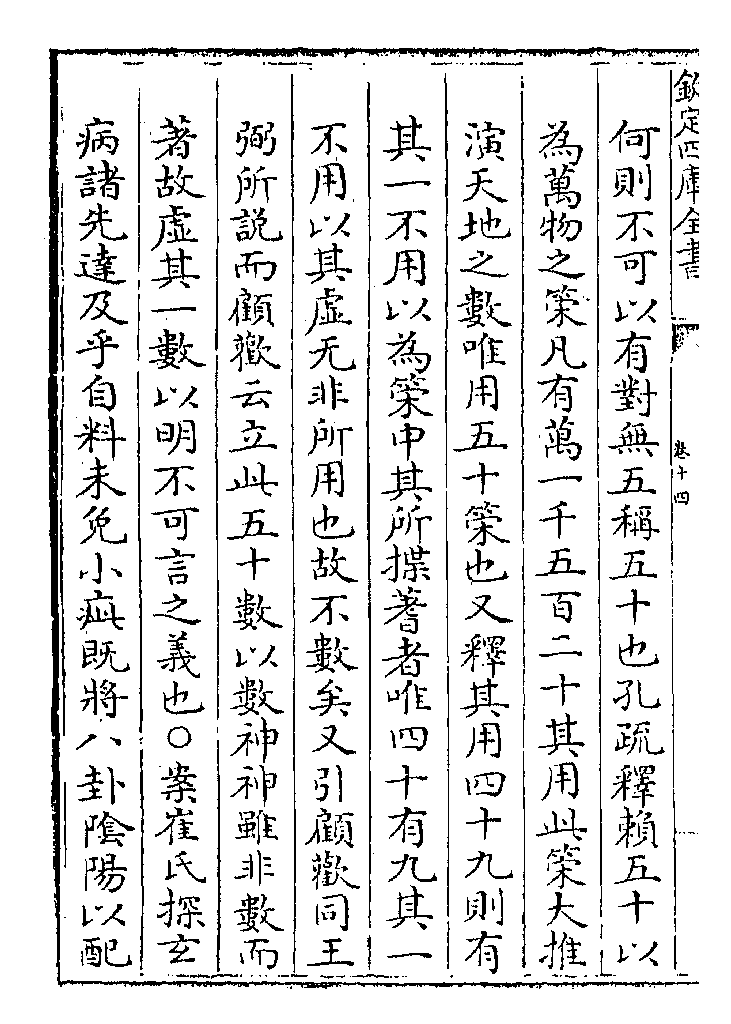 欽定四庫全書
卷十四
何則不可以有對無五稱五十也孔疏釋賴五十以
為萬物之䇿凡有萬一千五百二十其用此䇿大推
演天地之數唯用五十䇿也又釋其用四十九則有
其一不用以為䇿中其所揲蓍者唯四十有九其一
不用以其虛无非所用也故不數矣又引顧歡同王
弼所説而顧歡云立此五十數以數神神雖非數而
著故虛其一數以明不可言之義也○案崔氏探玄
病諸先達及乎自料未免小疵既將八卦隂陽以配